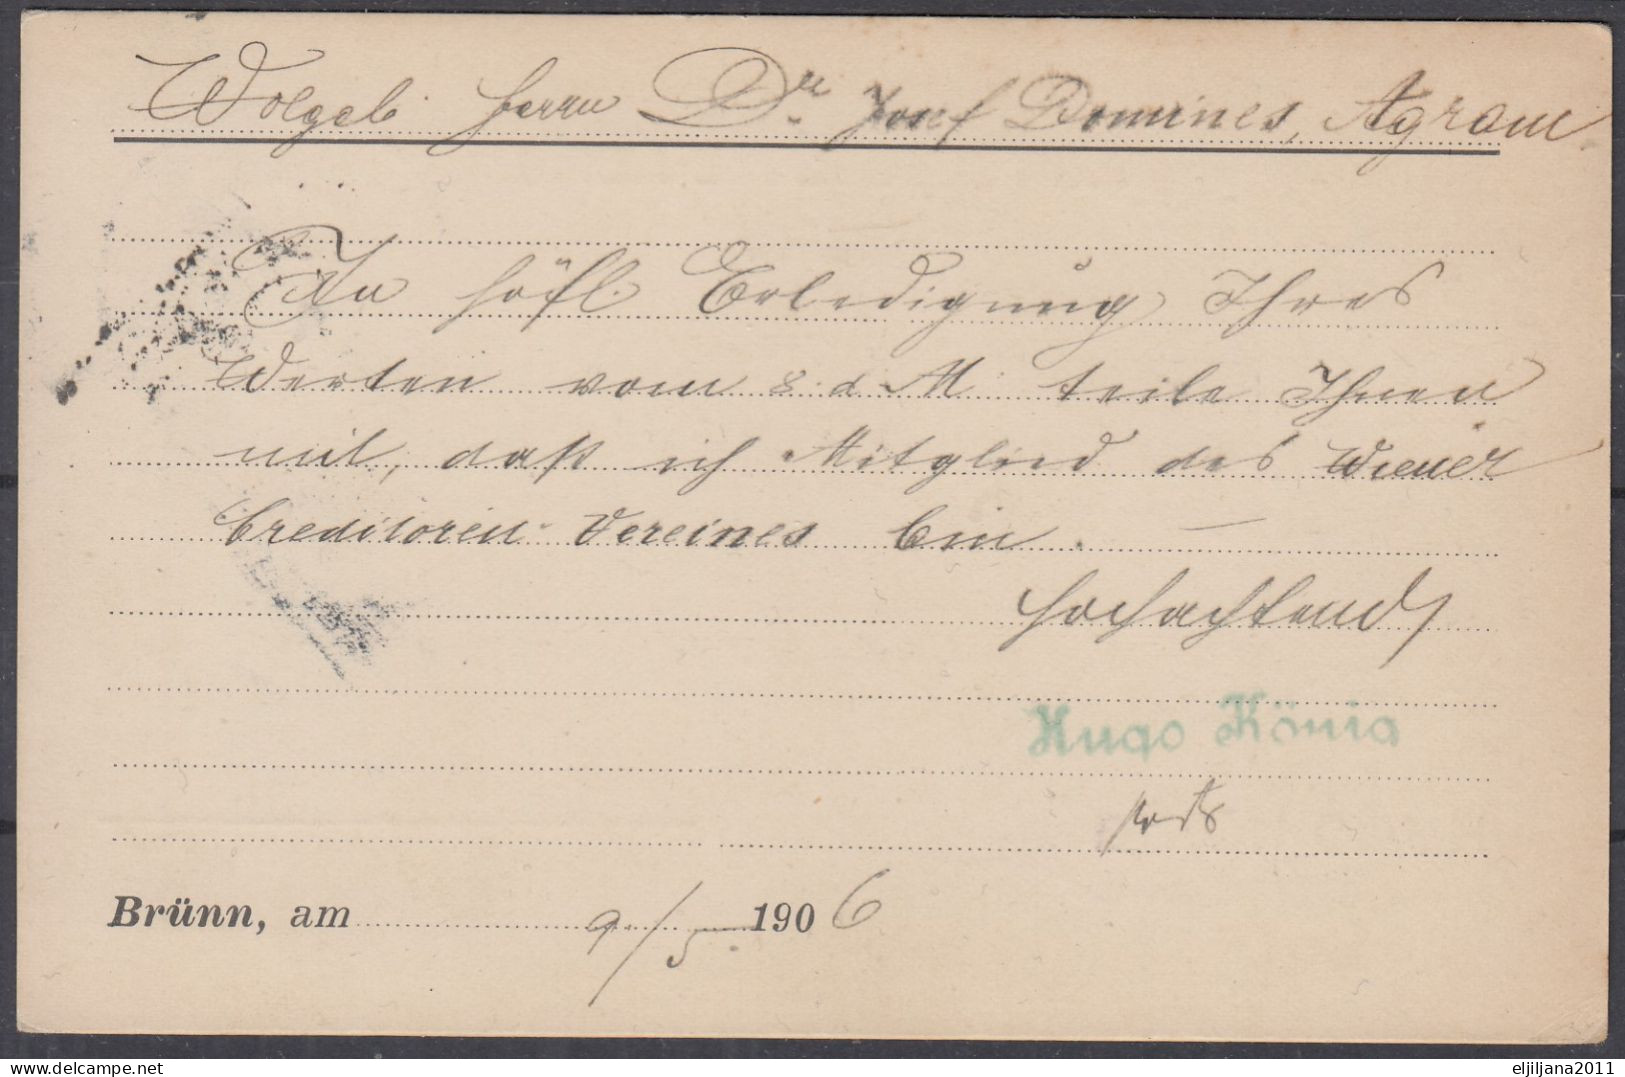 Wolgeb. Herrn Dr. Josef Domines, Agram.
In höfl. Erledigung Ihres
Werten vom 8. d. M. teile Ihnen
mit, daß ich Mitglied des Wiener
Creditoren-Vereines bin. —
Hochachtend
Hugo König
Brünn, am 9./5. 1906
delcampe.net
eljiljana2011